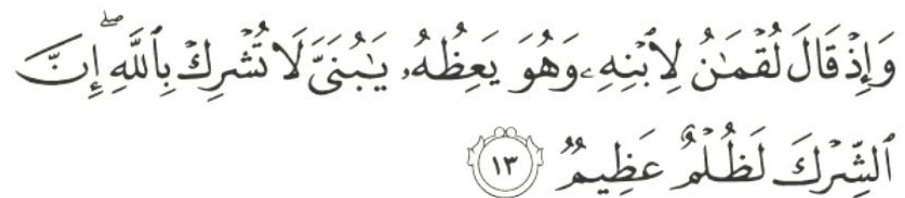 وَإِذۡ قَالَ لُقۡمَٰنُ لِٱبۡنِهِۦ وَهُوَ يَعِظُهُۥ يَٰبُنَيَّ لَا تُشۡرِكۡ بِٱللَّهِۖ إِنَّ
ٱلشِّرۡكَ لَظُلۡمٌ عَظِيمٞ ١٣